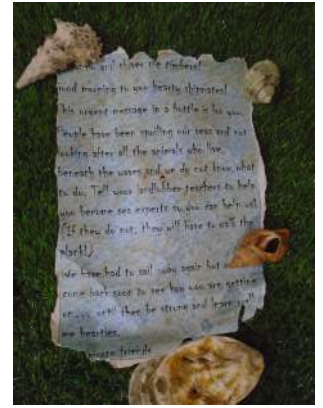 and shiver me timbers!
Good morning to you hearty shipmates!
This urgent message in a bottle is for you.
People have been spoiling our seas and not
looking after all the animals who live
beneath the waves and we do not know what
to do. Tell your landlubber teachers to help
you become sea experts so you can help us!
(If they do not, they will have to walk the
plank!)
We have had to sail away again but
come back soon to see how you are getting
on.... until then be strong and learn well
me hearties.
pirate friends